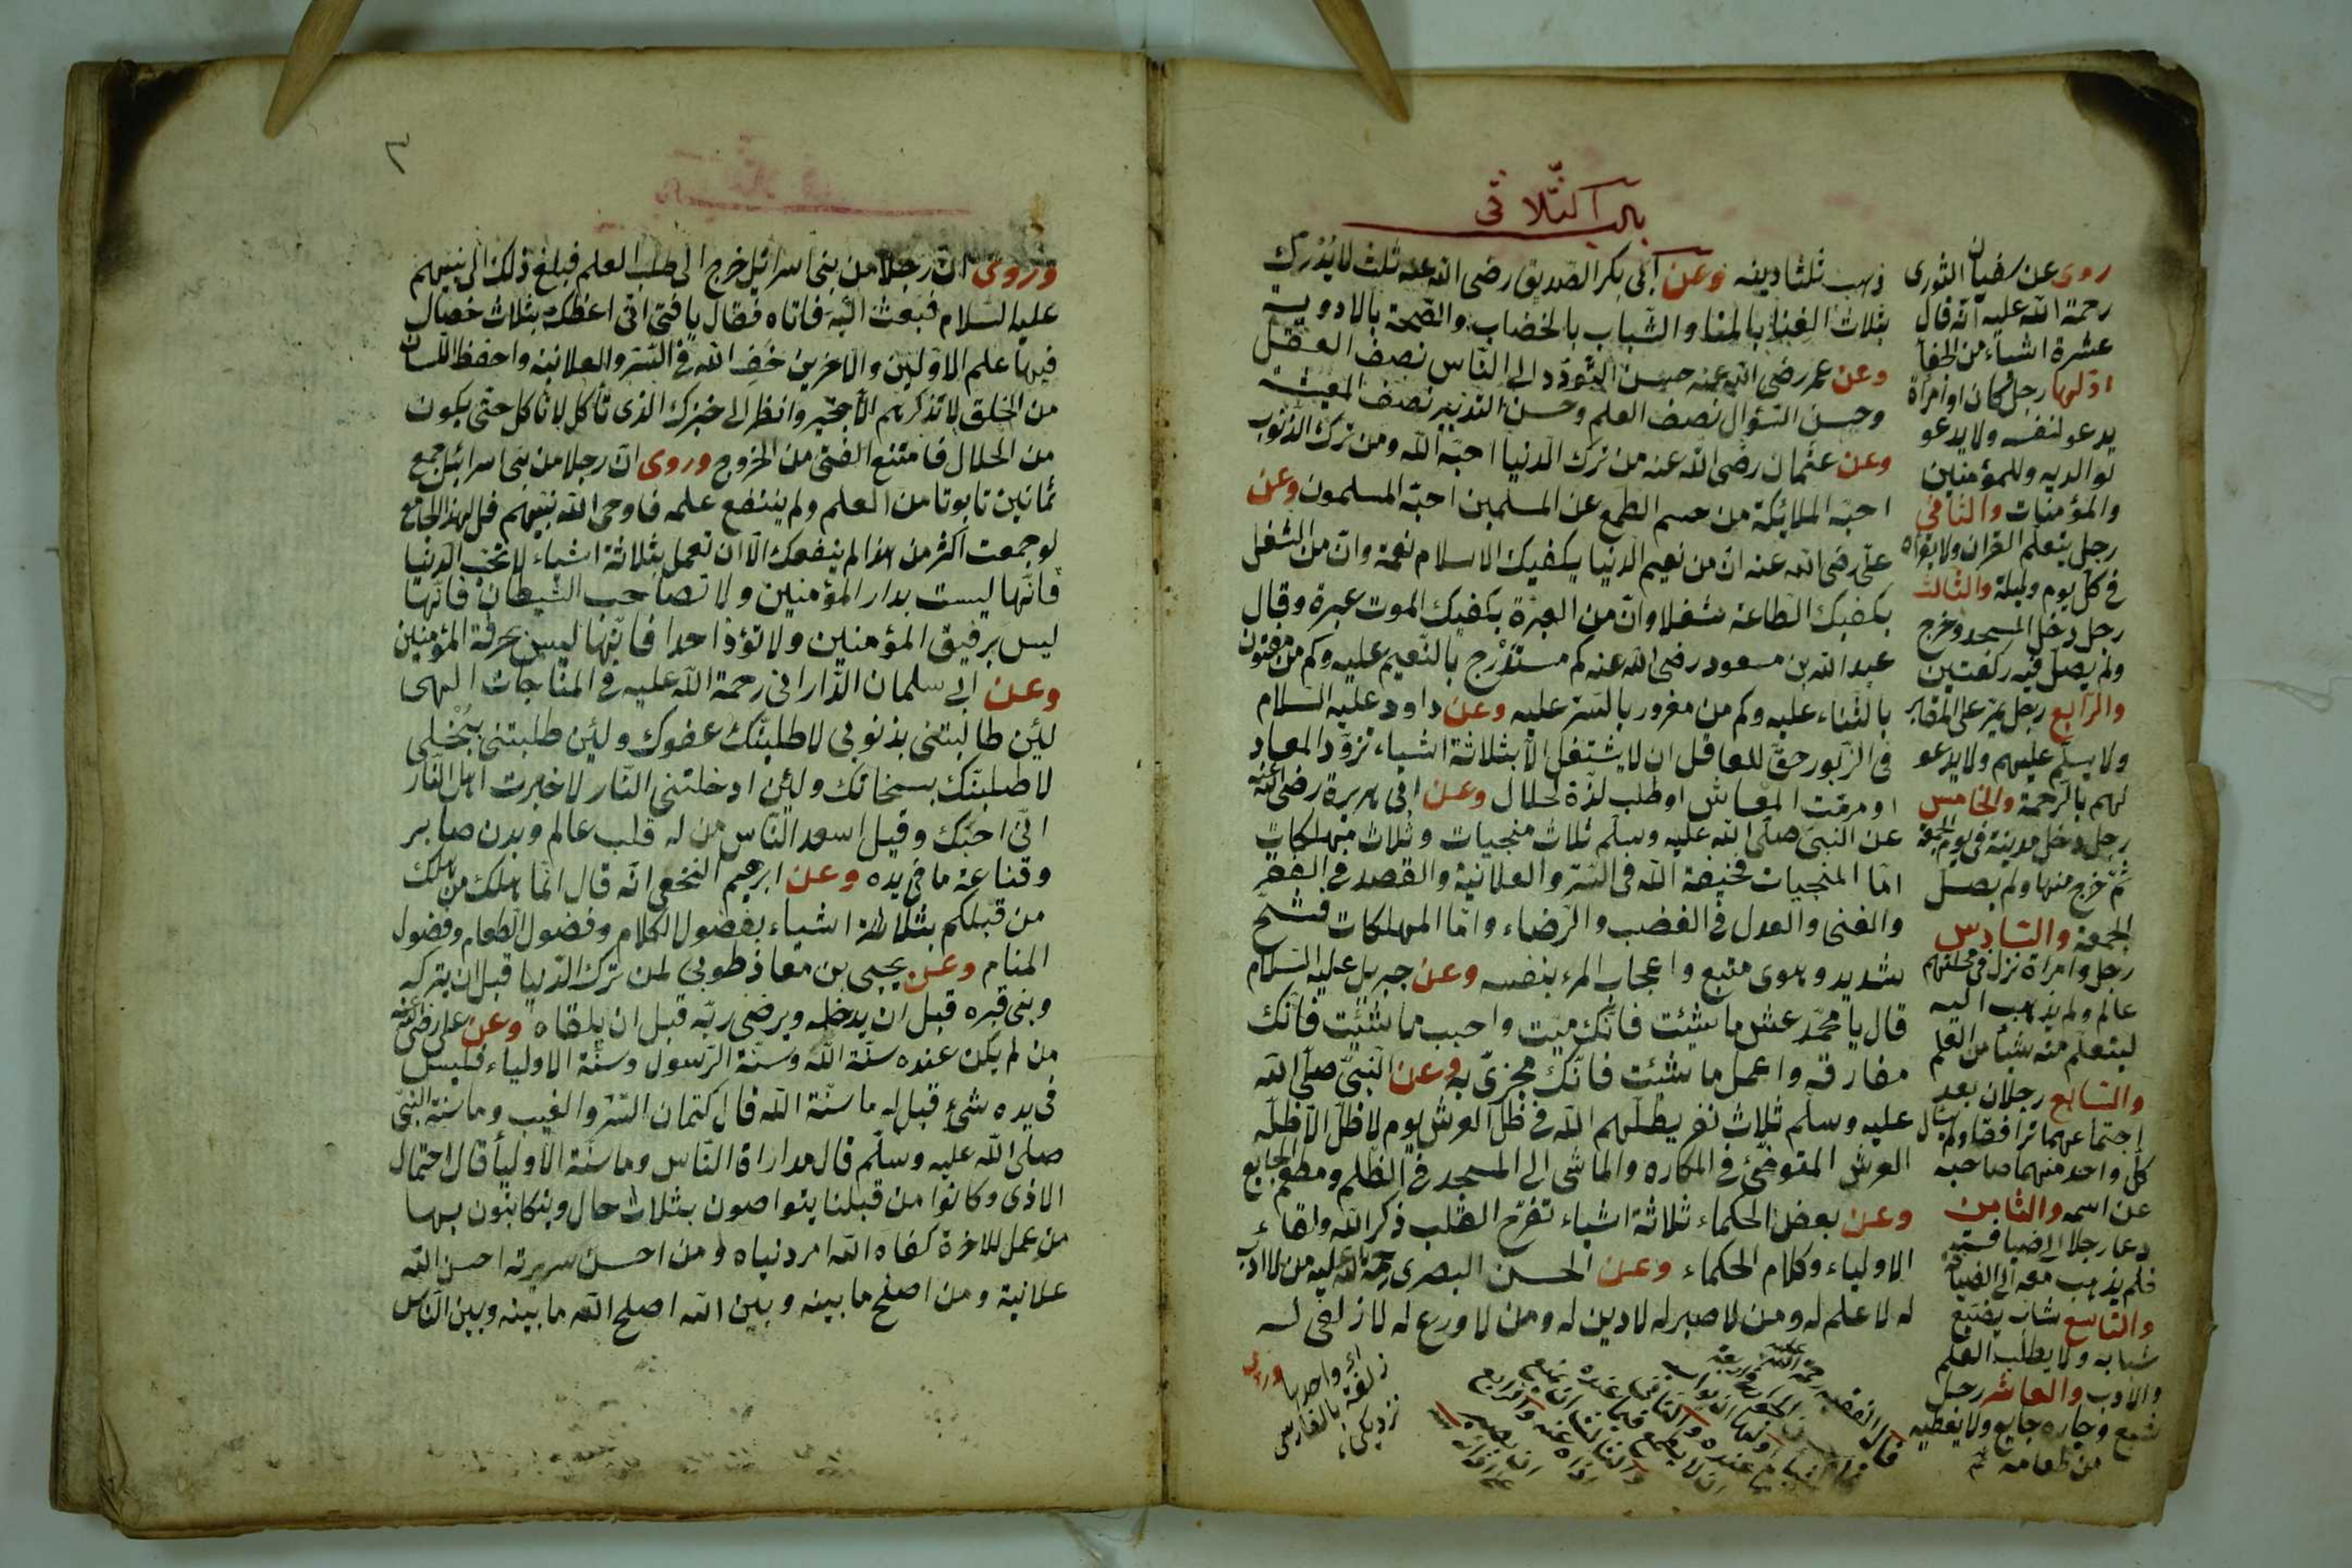 باب الثلاثى
ذهب ثلثا دينه وعن ابى بكر الصديق رضى الله عنه ثلث لا يدرك
بثلاث الغنا بالمنا والشباب بالخضاب والصحة بالادوية
وعن عمر رضى الله عنه حسن التودد الى الناس نصف العقل
وحسن السؤال نصف العلم وحسن التدبير نصف المعيشة
وعن عثمان رضى الله عنه من ترك الدنيا احبه الله ومن ترك الذنوب
احبه الملائكة من حسم الطمع عن المسلمين احبه المسلمون وعن
على رضى الله عنه ان من نعيم الدنيا يكفيك الاسلام نعمة وان من الشغل
يكفيك الطاعة شغلا وان من العبرة يكفيك الموت عبرة وقال
عبد الله بن مسعود رضى الله عنه كم مستدرج بالنعيم عليه وكم من مفتون
بالثناء عليه وكم من مغرور بالستر عليه وعن داود عليه السلام
فى الزبور حق للعاقل ان لا يشتغل الا بثلاثة اشياء تزود المعاد
او مرمت المعاش او طلب لذة لحلال وعن ابى هريرة رضى الله عنه
عن النبى صلى الله عليه وسلم ثلاث منجيات وثلاث مهلكات
اما المنجيات فخيفة الله فى السر والعلانية والقصد فى الفقر
والغنى والعدل فى الغضب والرضاء واما المهلكات فشح
شديد وهوى متبع واعجاب المرء بنفسه وعن جبريل عليه السلام
قال يا محمد عش ما شئت فانك ميت واحبب ما شئت فانك
مفارقه واعمل ما شئت فانك مجزى به وعن النبى صلى الله
عليه وسلم ثلاث نفر يظلهم الله فى ظل العرش يوم لا ظل الا ظله
العرش المتوضئ فى المكاره والماشى الى المسجد فى الظلم ومطعم الجايع
وعن بعض الحكماء ثلاثة اشياء تفرح القلب ذكر الله ولقاء
الاولياء وكلام الحكماء وعن الحسن البصرى رحمة الله عليه من لا ادب
له لا علم له ومن لا صبر له لا دين له ومن لا ورع له لا زلفى له
وروى
روى عن سفيان الثورى
رحمة الله عليه انه قال
عشرة اشياء من الجفآ
اولها رجل كان او امرأة
يدعو لنفسه ولا يدعو
لوالديه وللمؤمنين
والمؤمنات والثانى
رجل يتعلم القران ولا يقراه
فى كل يوم وليلة والثالث
رجل دخل المسجد وخرج
ولم يصل فيه ركعتين
والرابع رجل يمر على المقابر
ولا يسلم عليهم ولا يدعو
لهم بالرحمة والخامس
رجل دخل مدينة فى يوم الجمعة
ثم خرج منها ولم يصل
الجمعة والسادس
رجل وامراة نزل فى محلتهم
عالم ولم يذهب اليه
ليتعلم منه شيأ من العلم
والسابع رجلان بعد
اجتماعهما ترافقا ولم يسأل
كل واحد منهما صاحبه
عن اسمه والثامن
دعا رجلا الى ضيافته
فلم يذهب معه الى الضيافة
والتاسع شاب يضيع
شبابه ولا يطلب العلم
والادب والعاشر رجل
شبع وجاره جايع ولا يعطيه
من طعامه
زلفة بالفارسى
نزديكى
وروى ان رجلا من بنى اسرائيل خرج الى طلب العلم فبلغ ذلك الى نبيهم
عليه السلام فبعث اليه فاتاه فقال يا فتى انى اعظك بثلاث خصال
فيها علم الاولين والاخرين خف الله فى السر والعلانية واحفظ اللسان
من الخلق لا تذكرهم الا بخير وانظر الى خبزك الذى تأكل لا تأكل حتى يكون
من الحلال فامتنع الفتى من الخروج وروى ان رجلا من بنى اسرائيل جمع
ثمانين تابوتا من العلم ولم ينتفع علمه فاوحى الله نبيهم قل لهذا الجامع
لو جمعت اكثر من هذا لم ينفعك الا ان تعمل بثلاثة اشياء لا تحب الدنيا
فانها ليست بدار المؤمنين ولا تصاحب الشيطان فانها
ليس برفيق المؤمنين ولا تؤذ احدا فانها ليس بحرفة المؤمنين
وعن ابى سلمان الدارانى رحمة الله عليه فى المناجات الهى
لئن طالبتنى بذنوبى لاطلبنك عفوك ولئن طلبتنى ببخلى
لاطلبنك بسخاتك ولئن ادخلتنى النار لاخبرت اهل النار
انى احبك وقيل اسعد الناس من له قلب عالم وبدن صابر
وقناعة ما فى يده وعن ابرهيم النخعى انه قال انما هلك من هلك
من قبلكم بثلاثة اشياء بفضول الكلام وفضول الطعام وفضول
المنام وعن يحيى بن معاذ طوبى لمن ترك الدنيا قبل ان يتركه
وبنى قبره قبل ان يدخله ويرضى ربه قبل ان يلقاه وعن على رضى الله عنه
من لم يكن عنده سنة الله وسنة الرسول وسنة الاولياء فليس
فى يده شئ قيل له ما سنة الله قال كتمان السر والغيب وما سنة النبى
صلى الله عليه وسلم قال مداراة الناس وما سنة الاوليأ قال احتمال
الاذى وكانوا من قبلنا يتواصون بثلاث حال ويتكاتبون بها
من عمل للاخرة كفاه الله امر دنياه ومن احسن سريرته احسن الله
علانية ومن اصلح ما بينه وبين الله اصلح الله ما بينه وبين الناس